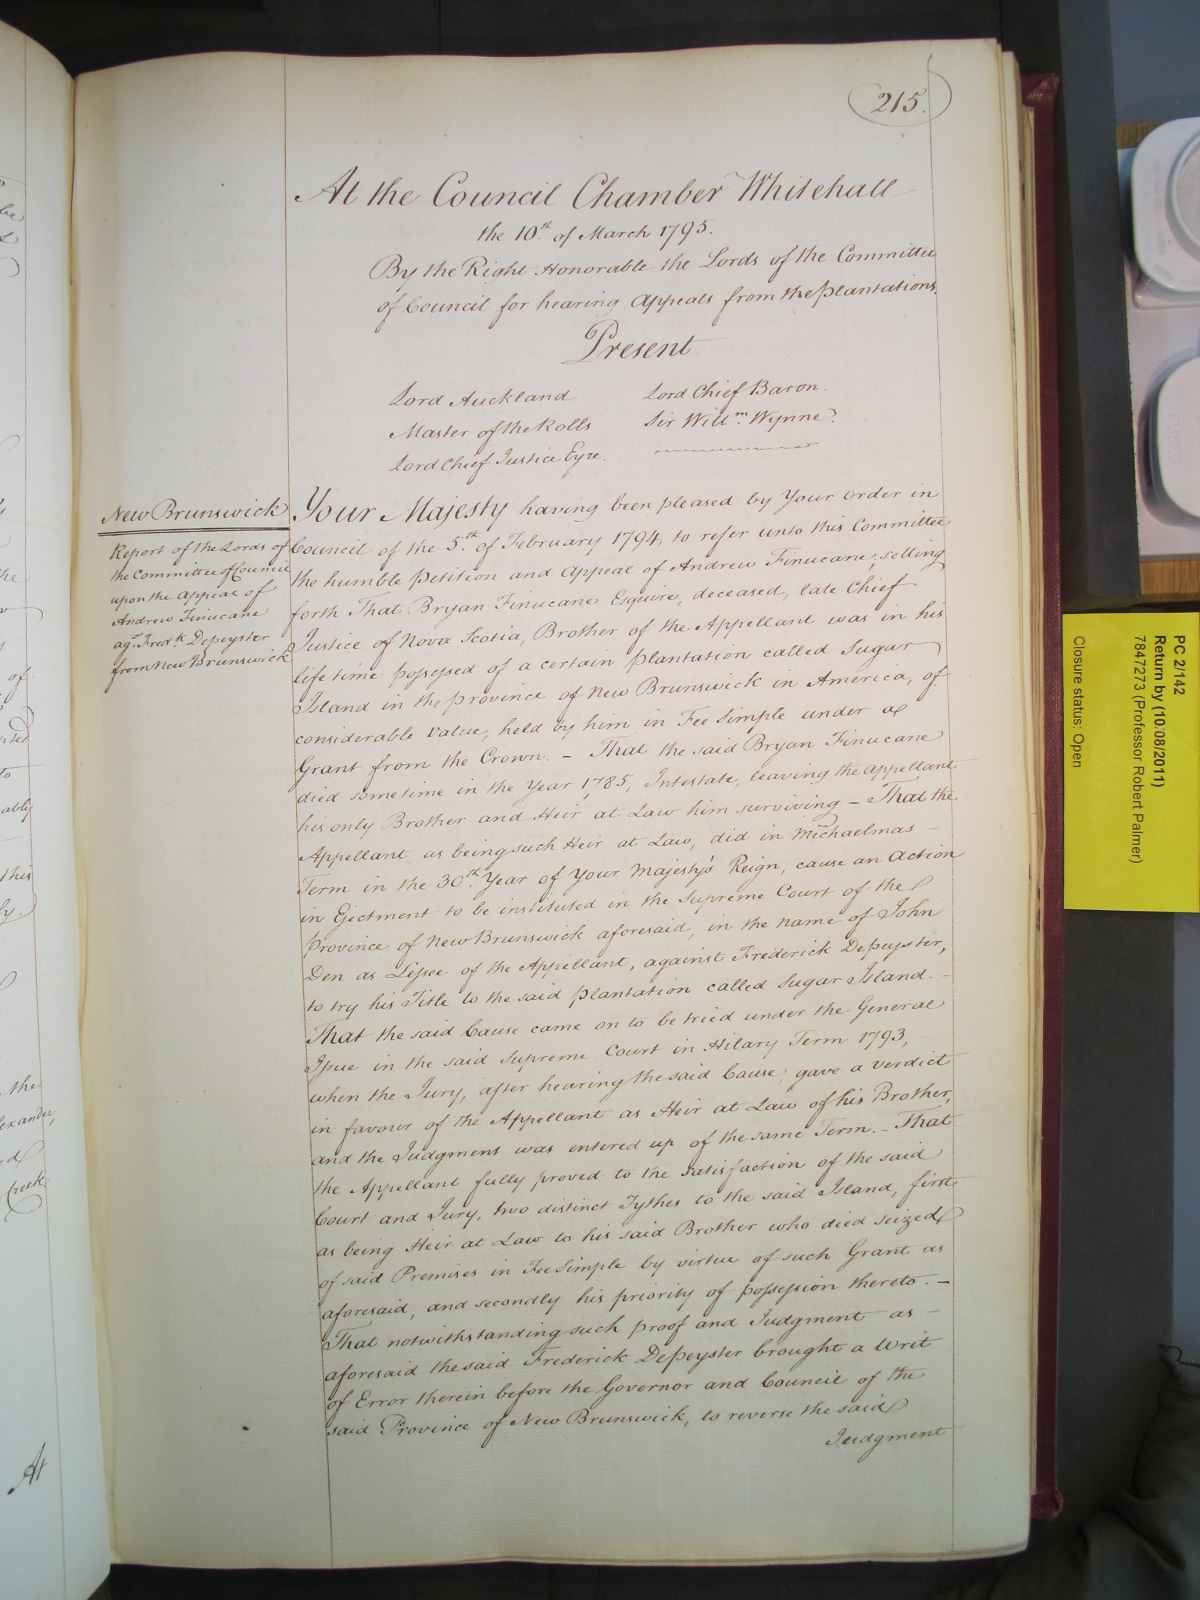 215.
At the Council Chamber Whitehall
the 10th. of March 1795.
By the Right Honorable the Lords of the Committee
of Council for hearing Appeals from the Plantations.
Present
Lord Auckland
Master of the Rolls
Lord Chief Justice Eyre.
Lord Chief Baron.
Sir Willm. Wynne.
New Brunswick
Report of the Lords of
the Committee of Council
upon the Appeal of
Andrew Finucane
agt. Fredk. Depeyster
from New Brunswick
Your Majesty having been pleased by Your Order in
Council of the 5th. of February 1794, to refer unto this Committee
the humble Petition and Appeal of Andrew Finucane; setting
forth That Bryan Finucane Esquire, deceased, late Chief
Justice of Nova Scotia, Brother of the Appellant was in his
life time possessed of a certain Plantation called Sugar
Island in the province of New Brunswick in America, of
considerable value, held by him in Fee Simple under a
Grant from the Crown. - That the said Bryan Finucane
died sometime in the Year 1785, Intestate, leaving the Appellant
his only Brother and Heir at Law him surviving - That the
Appellant, as being such Heir at Law, did in Michaelmas -
Term in the 30th. Year of Your Majesty's Reign, cause an Action
in Ejectment to be instituted in the Supreme Court of the
Province of New Brunswick aforesaid, in the name of John
Den as Lessee of the Appellant, against Frederick Depeyster,
to try his Title to the said Plantation called Sugar Island. -
That the said Cause came on to be tried under the General
Issue in the said Supreme Court in Hilary Term 1793,
when the Jury, after hearing the said Cause, gave a Verdict
in favour of the Appellant as Heir at Law of his Brother,
and the Judgment was entered up of the same Term. - That
the Appellant fully proved to the satisfaction of the said
Court and Jury, two distinct Tythes to the said Island, first
as being Heir at Law to his said Brother who died seized
of said Premises in Fee Simple by virtue of such Grant as
aforesaid, and secondly his priority of possession thereto. -
That notwithstanding such proof and Judgment as -
aforesaid the said Frederick Depeyster brought a Writ
of Error therein before the Governor and Council of the
said Province of New Brunswick, to reverse the said
Judgment
of
to
ably
this
ly.
the
exander,
ed
Creek
At
PC 2/142
Return by (10/08/2011)
7847273 (Professor Robert Palmer)
Closure status: Open